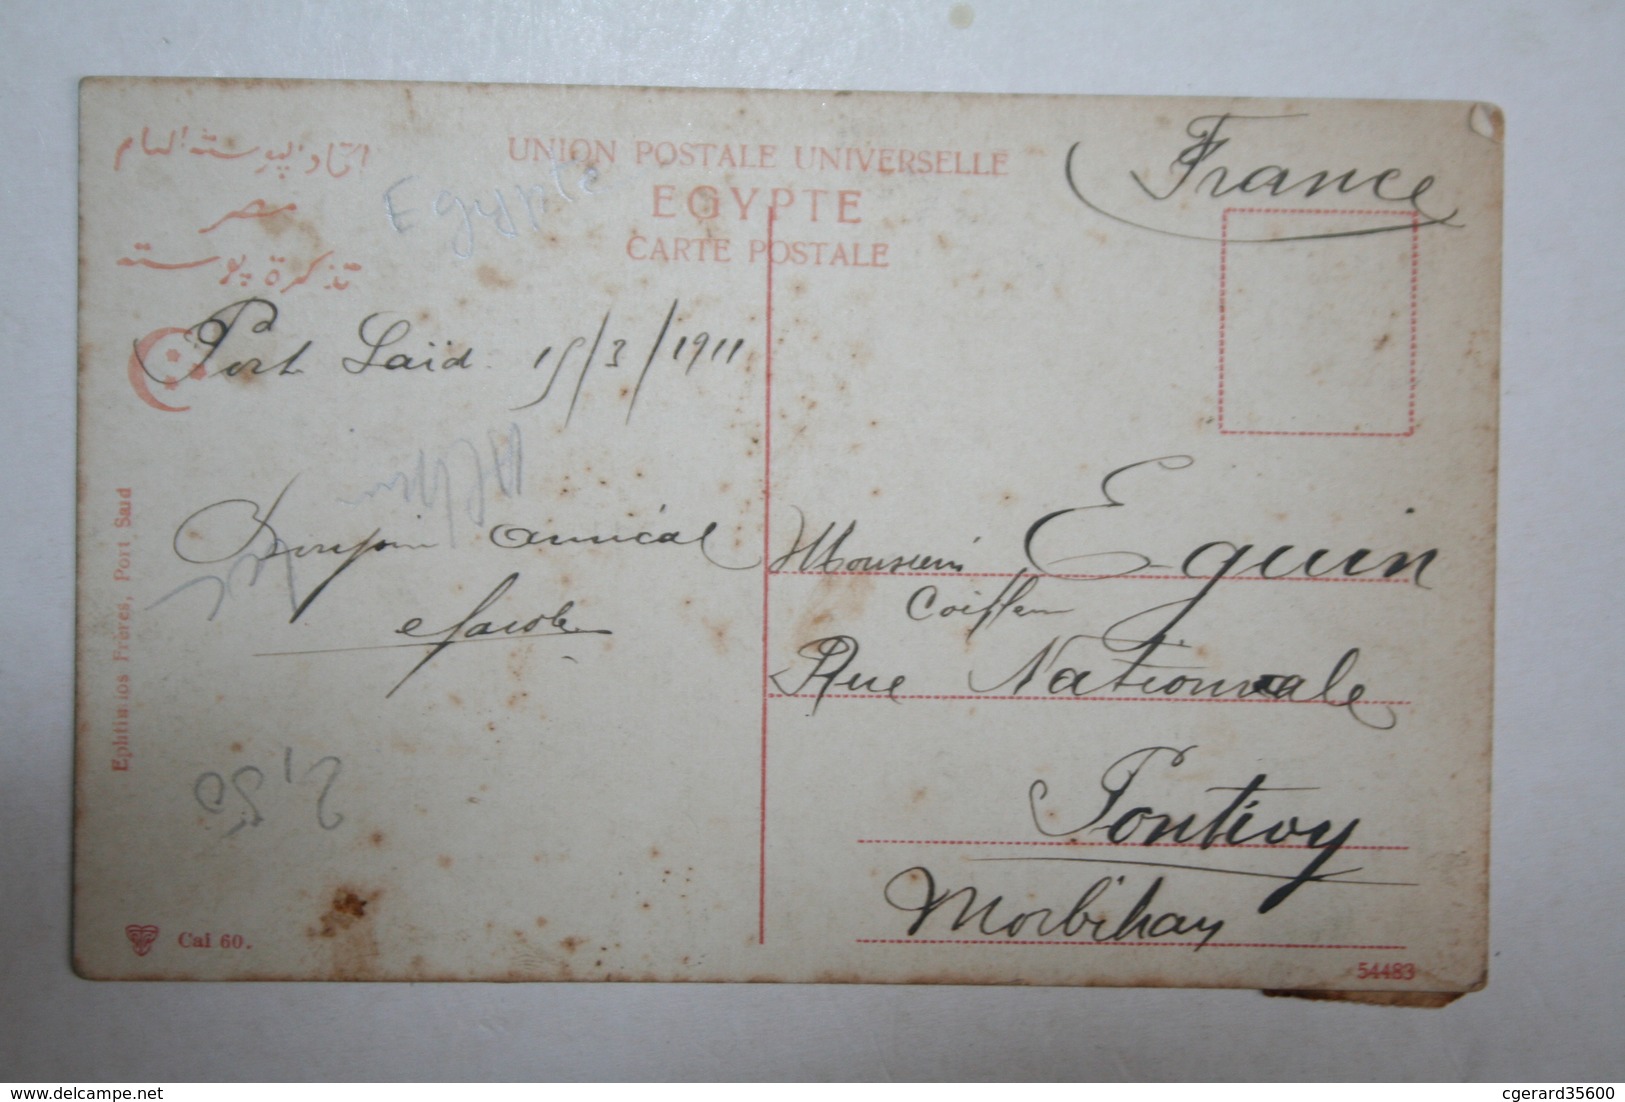 اتحاد البوسته العام
مصر
تذكرة بوسته
UNION POSTALE UNIVERSELLE
EGYPTE
CARTE POSTALE
Egypte
France
Port Saïd 15/3/1911
amical
Monsieur Eguin
Coiffeur
Rue Nationale
Pontivy
Morbihan
2,50
Ephtimios Frères, Port Said
Cai 60.
54483
delcampe.net
cgerard35600